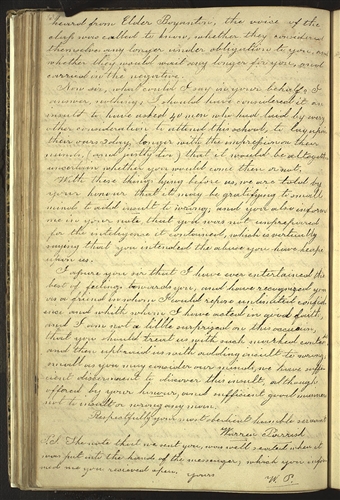 heard from Elder Boyanton, the voice of the
class was called to know, whether they considered
themselves any longer under obligation to you, and
whether they would wait any longer for you, and
carried in the negative.
Now sir, what could I say in your behalf? I
answer, nothing. I should have considered it an
insult to have asked 40 men who had laid by every
other consideration to attend this school, to lay upon
their oars 3 day, longer with the impression on their
minds, (and justly too) that it would be altogether
uncertain whether you would come then or not.
With these things lying before us, we are told by
your honour that it may be gratifying to small
minds to add insult to wrong, and you also inform
me in your note, that you was not unprepared
for the inteligence it contained, which is virtually
saying that you intended the abuse you have heaped
upon us.
I assure you sir that I have ever entertained the
best of feelings towards you, and have recognized you
as a friend in whom I could repose unlimited confid
ence and with whom I have acted in good faith,
and I am not a little surprized on this occasion,
that you should treat us with such marked contempt
and then upbraid us with adding insult to wrong,
small as you may consider our minds, we have suffi
cient discernment to discover this insult, although
offered by your honour, and sufficient good manners
not to insult or wrong any man.
Respectfully your most obedient humble servant
Warren Parrish
P.S. The note that we sent you, was well sealed when it
was put into the hands of the messenger, which you infor
med me you recieved open,
yours W. P.